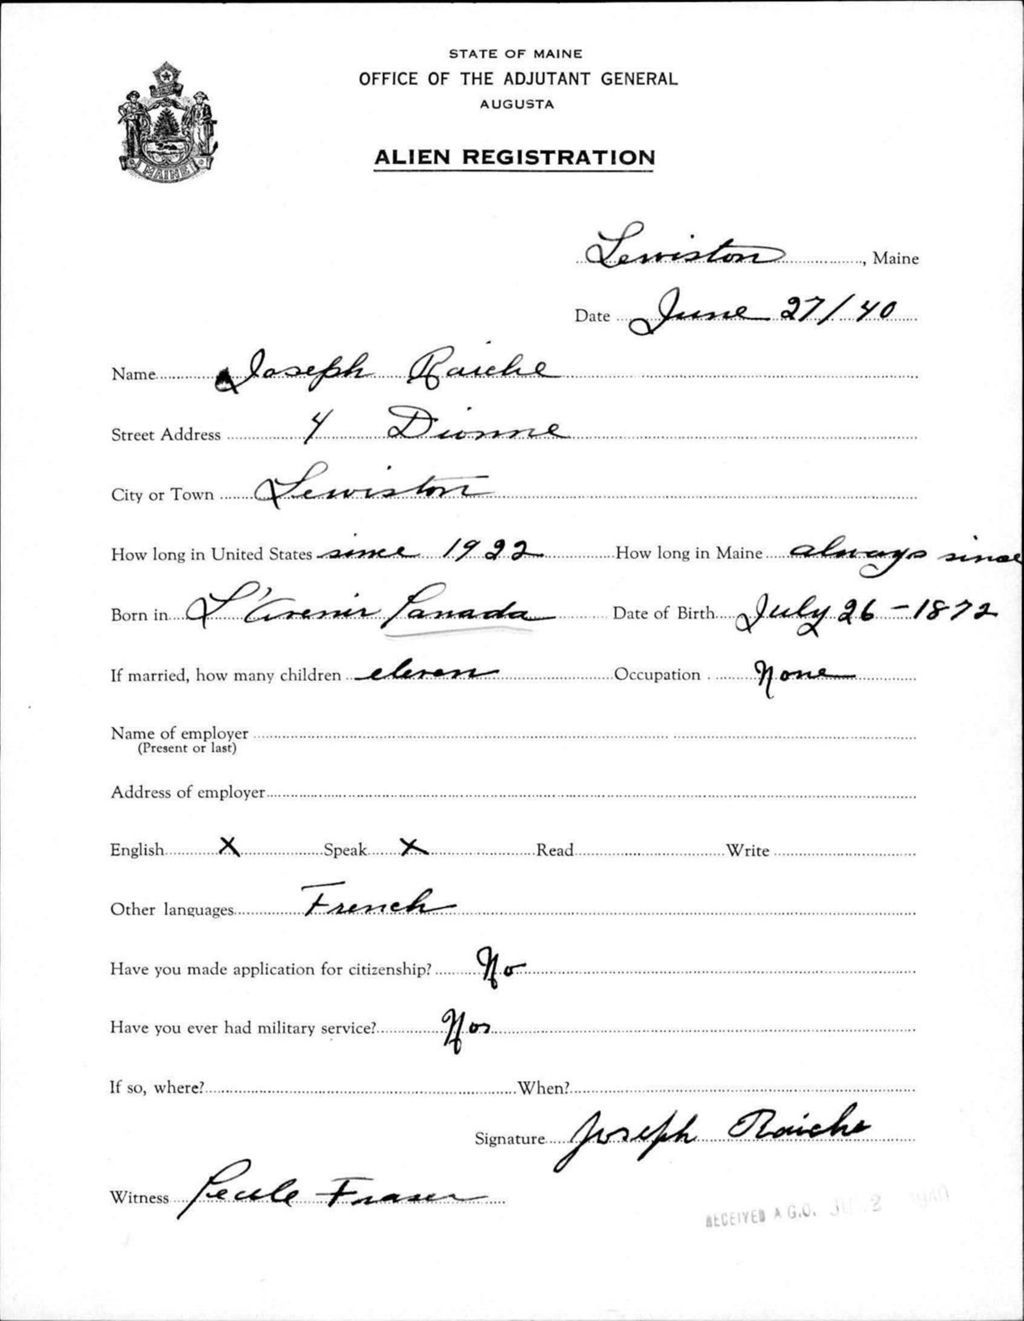 STATE OF MAINE
OFFICE OF THE ADJUTANT GENERAL
AUGUSTA
ALIEN REGISTRATION
MAINE
Lewiston, Maine
Date June 27/40
Name Joseph Raiche
Street Address 4 Dionne
City or Town Lewiston
How long in United States since 1922 How long in Maine always since
Born in L'Avenir Canada Date of Birth July 26-1872
If married, how many children eleven Occupation None
Name of employer
(Present or last)
Address of employer
English X Speak X Read Write
Other languages French
Have you made application for citizenship? No
Have you ever had military service? No
If so, where? When?
Signature Joseph Raiche
Witness Cecile Fraser
RECEIVED A.G.O. 2 1940